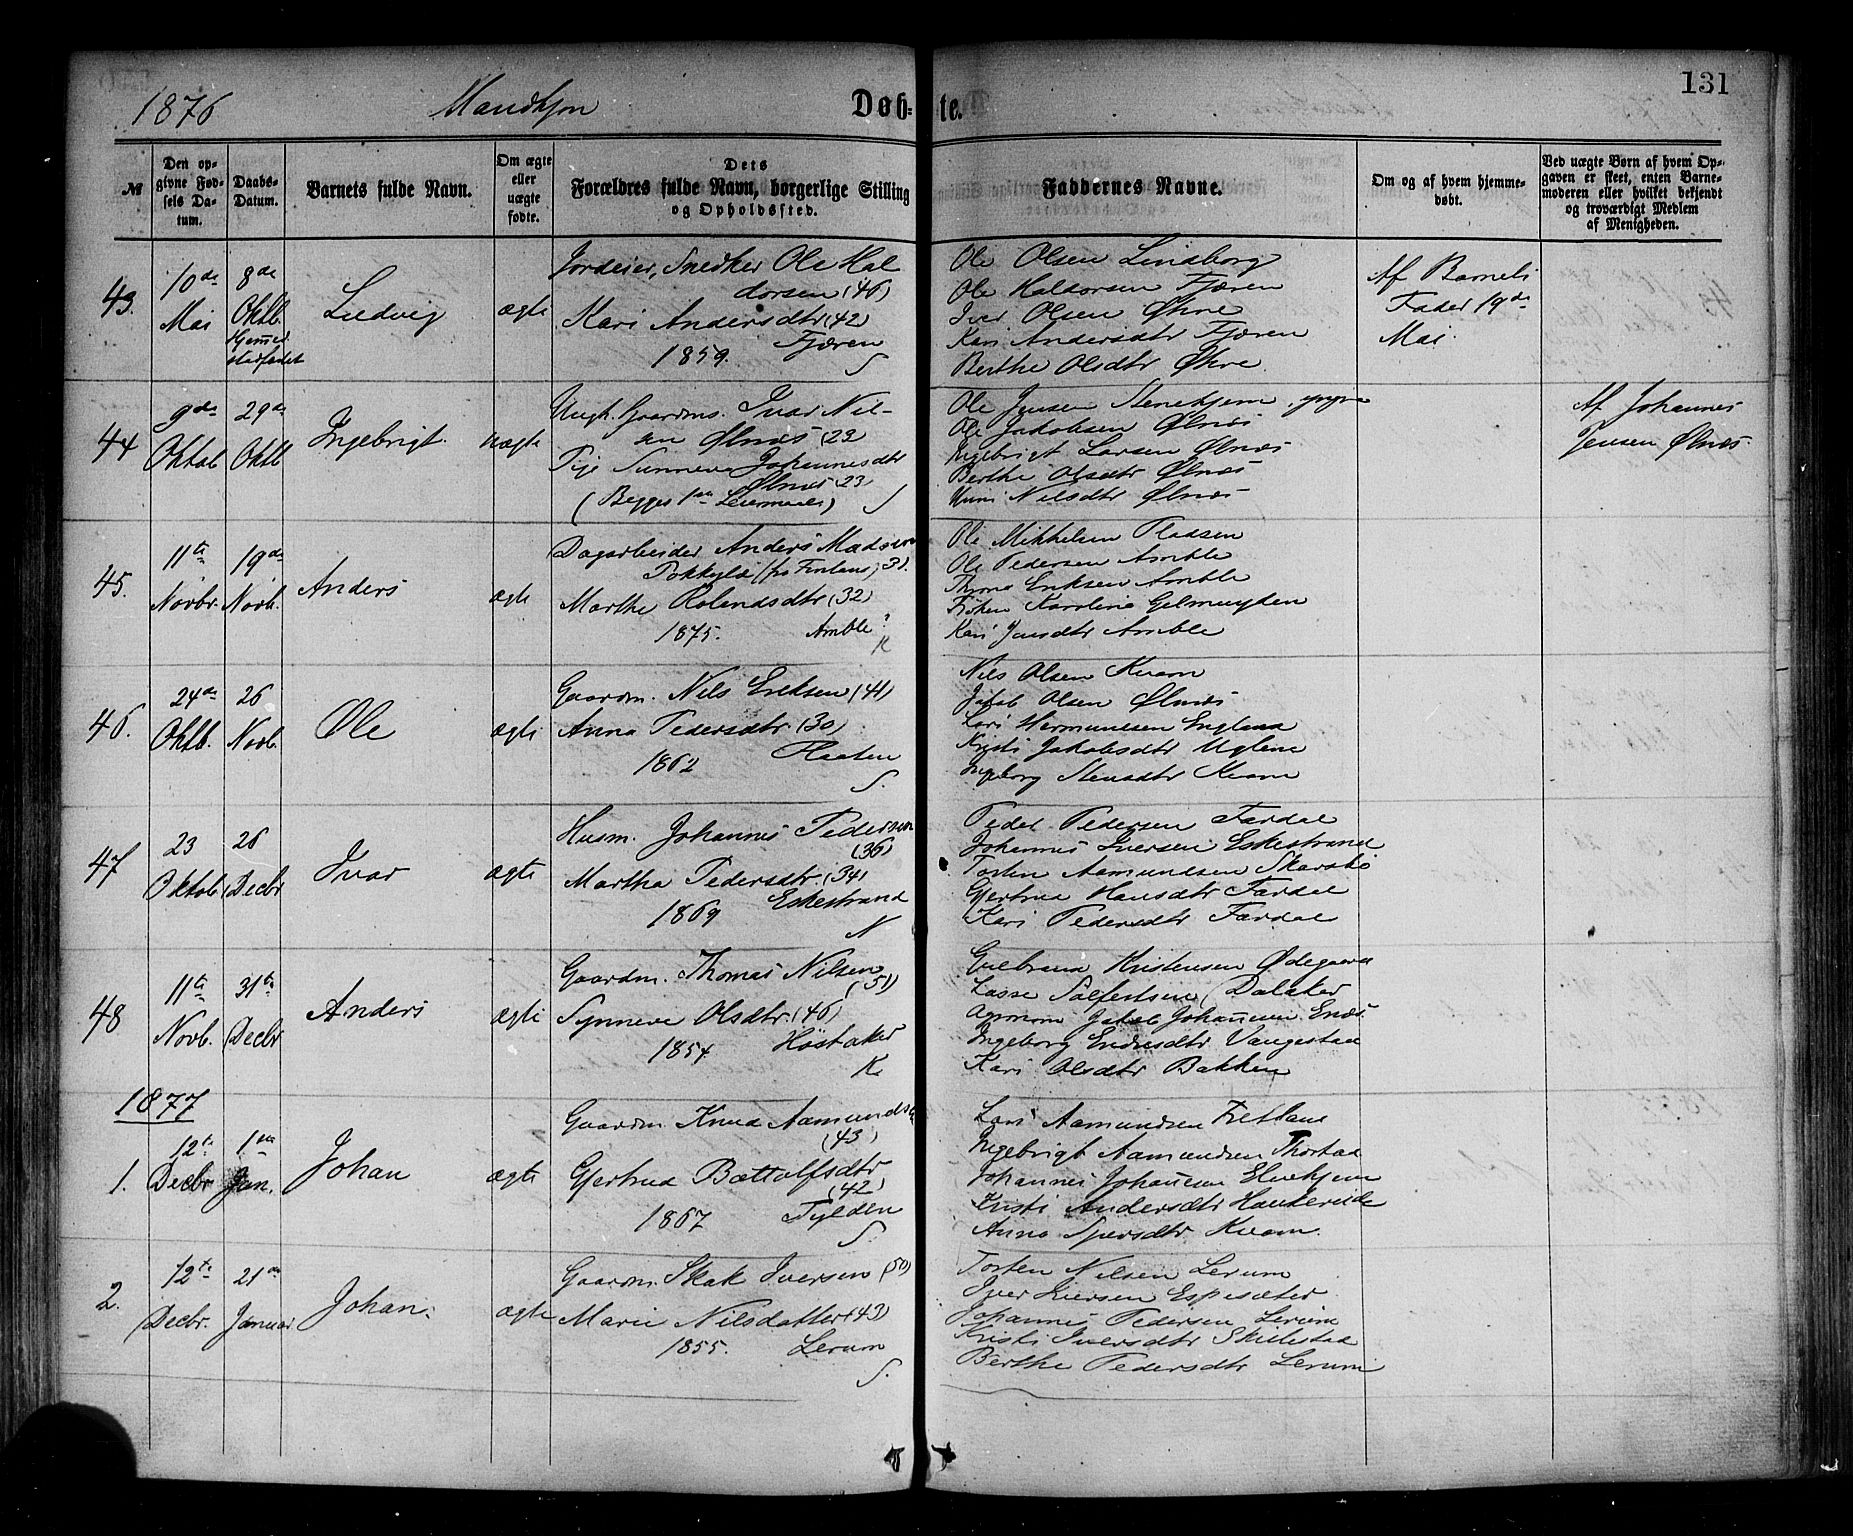 1876 Mandkjøn Døbte. 131
№
Den opgivne Fødsels Datum.
Daabs-Datum.
Barnets fulde Navn.
Om ægte eller uægte fødte.
Dets Forældres fulde Navn, borgerlige Stilling og Opholdssted.
Faddernes Navne.
Om og af hvem hjemmedøbt.
Ved uægte Børn af hvem Opgaven er skeet, enten Barnemoderen eller hvilket bekjendt og troværdigt Medlem af Menigheden.
43.
10de Mai
8de Oktb.
Hjemmed. stadfæstet
Ludvig
ægte
Jordeier, Snedker Ole Hal
dorsen (46)
Kari Andersdtr (42)
1859. Fjæren
S
Ole Olsen Lindborg
Ole Haldorsen Fjæren
Iver Olsen Øhre
Kari Andersdtr Fjæren
Berthe Olsdtr Øhre.
Af Barnets
Fader 19de
Mai.
44
9de Oktob
29de Oktb
Ingebrigt.
uægte
Ungk. Gaardms. Ivar Nil-
sen Ølnæs (29
Pige Sunneva Johannesdtr
Ølnæs (23)
(Begges 1ste Leiermaal)
S
Ole Jensen Stenehjem
Ole Jakobsen Ølnæs
Ingebrigt Larsen Ølnæs
Berthe Olsdtr Ølnæs
Unni Nilsdtr Ølnæs
Af Johannes
Jensen Ølnæs
45.
11te Novbr.
19de Novb.
Anders
ægte
Dagarbeider Anders Madsen
Pokkylä (fra Finland) 31.
Marthe Rolandsdtr (32)
1875. Amble
K
Ole Mikkelsen Pladsen
Ole Pedersen Amble
Thomas Eriksen Amble
Frøken Karoline Gelmuyden
Kari Jensdtr Amble
46.
24de Oktb.
26 Novb.
Ole
ægte
Gaardm. Nils Eriksen (41)
Anna Pedersdtr (30)
1862 Haaten
S.
Nils Olsen Kvam
Jakob Olsen Ølnæs
Lars Hermundsen England
Kristi Jakobsdtr Uglene
Ingeborg Stensdtr Kvam
47
23 Oktob
26 Decbr
Ivar
ægte
Husm. Johannes Pedersen
(36)
Martha Pedersdtr (34)
1869 Eskestrand
N
Peder Pedersen Fardal
Johannes Iversen Eskestrand
Torsten Aamundsen Skarsbø
Gjertrud Hansdtr Fardal
Kari Pedersdtr Fardal
48
11te Novb.
31te Decbr
Anders
ægte
Gaardm. Thomas Nilsen
(51)
Synneve Olsdtr (46)
1854 Høstaker
K
Gulbrand Kristensen Ødegaard
Lasse Solfestsen Dalaker
Jakob Johannesen Enæs
Ingeborg Endresdtr Vangestad
Kari Olsdtr Bakken
1877
1.
12te Decbr
1ste Jan.
Johan
ægte
Gaardm. Knud Aamunds
(43)
Gjertrud Bottolfsdtr
(42)
1867 Tylden
S.
Lars Aamundsen Fretland
Ingebrigt Aamundsen Thorstad
Johannes Johannesen Stenehjem
Kristi Andersdtr Haukereide
Anna Sjursdtr Kvam.
2.
12te Decbr.
21de Januar
Johan.
ægte
Gaardm. Skak Iversen (50)
Marie Nilsdatter (43)
1855. Lerum
S.
Torsten Nilsen Lerum
Iver Iversen Espesæter
Johannes Pedersen Lerum
Kristi Iversdtr Skilestad
Berthe Pedersdtr Lerum